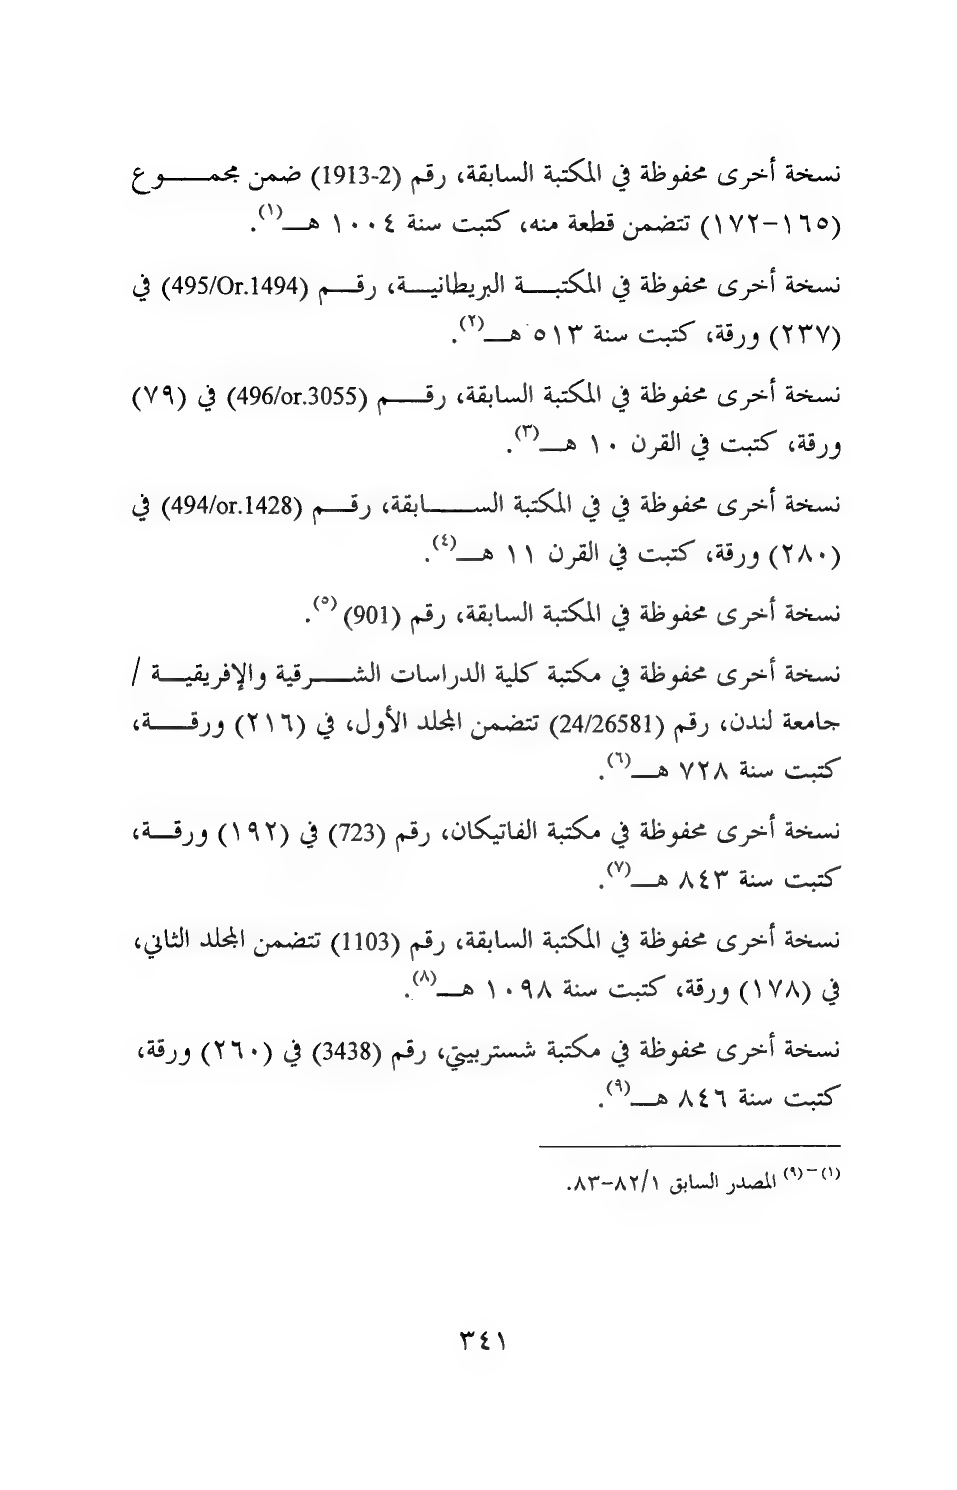 نسخة أخرى محفوظة في المكتبة السابقة، رقم (1913-2) ضمن مجمـــــوع
(١٦٥-١٧٢) تتضمن قطعة منه، كتبت سنة ١٠٠٤ هــ(١).
نسخة أخرى محفوظة في المكتبـــة البريطانيــة، رقــم (495/Or.1494) في
(٢٣٧) ورقة، كتبت سنة ٥١٣ هــ(٢).
نسخة أخرى محفوظة في المكتبة السابقة، رقـــم (496/or.3055) في (٧٩)
ورقة، كتبت في القرن ١٠ هــ(٣).
نسخة أخرى محفوظة في في المكتبة الســـــابقة، رقــم (494/or.1428) في
(٢٨٠) ورقة، كتبت في القرن ١١ هــ(٤).
نسخة أخرى محفوظة في المكتبة السابقة، رقم (901) (٥).
نسخة أخرى محفوظة في مكتبة كلية الدراسات الشـــرقية والإفريقيــة /
جامعة لندن، رقم (24/26581) تتضمن المجلد الأول، في (٢١٦) ورقـــة،
كتبت سنة ٧٢٨ هــ(٦).
نسخة أخرى محفوظة في مكتبة الفاتيكان، رقم (723) في (١٩٢) ورقــة،
كتبت سنة ٨٤٣ هــ(٧).
نسخة أخرى محفوظة في المكتبة السابقة، رقم (1103) تتضمن المجلد الثاني،
في (١٧٨) ورقة، كتبت سنة ١٠٩٨ هــ(٨).
نسخة أخرى محفوظة في مكتبة شستربيتي، رقم (3438) في (٢٦٠) ورقة،
كتبت سنة ٨٤٦ هــ(٩).
(١)-(٩) المصدر السابق ٨٢/١-٨٣.
٣٤١